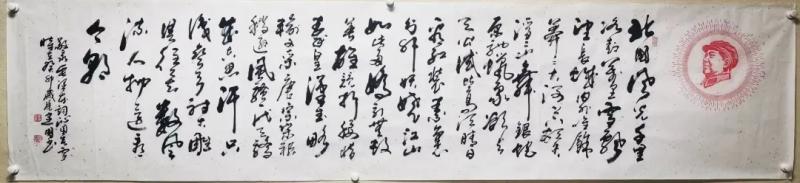 北国风光千里
冰封万里雪飘
望长城内外惟余
莽莽大河上下顿失
滔滔山舞银蛇
原驰蜡象欲与
天公试比高须晴日
看红装素裹
分外妖娆江山
如此多娇引无数
英雄竞折腰惜
秦皇汉武略
输文采唐宗宋祖
稍逊风骚一代天骄
成吉思汗只
识弯弓射大雕
俱往矣数风
流人物还看
今朝
敬录毛泽东词沁园春雪
时在癸卯